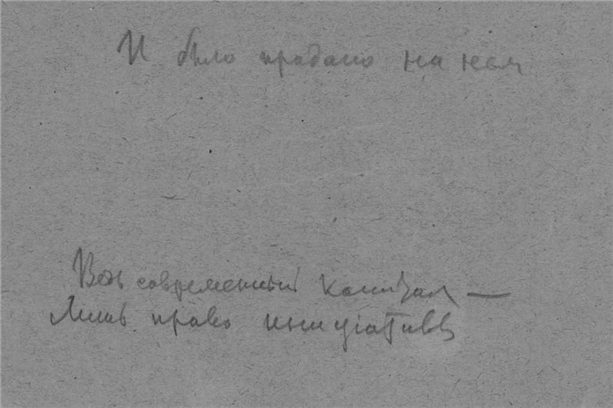 И было продано на нем
Ведь современный капитал —
Лишь право инициативы